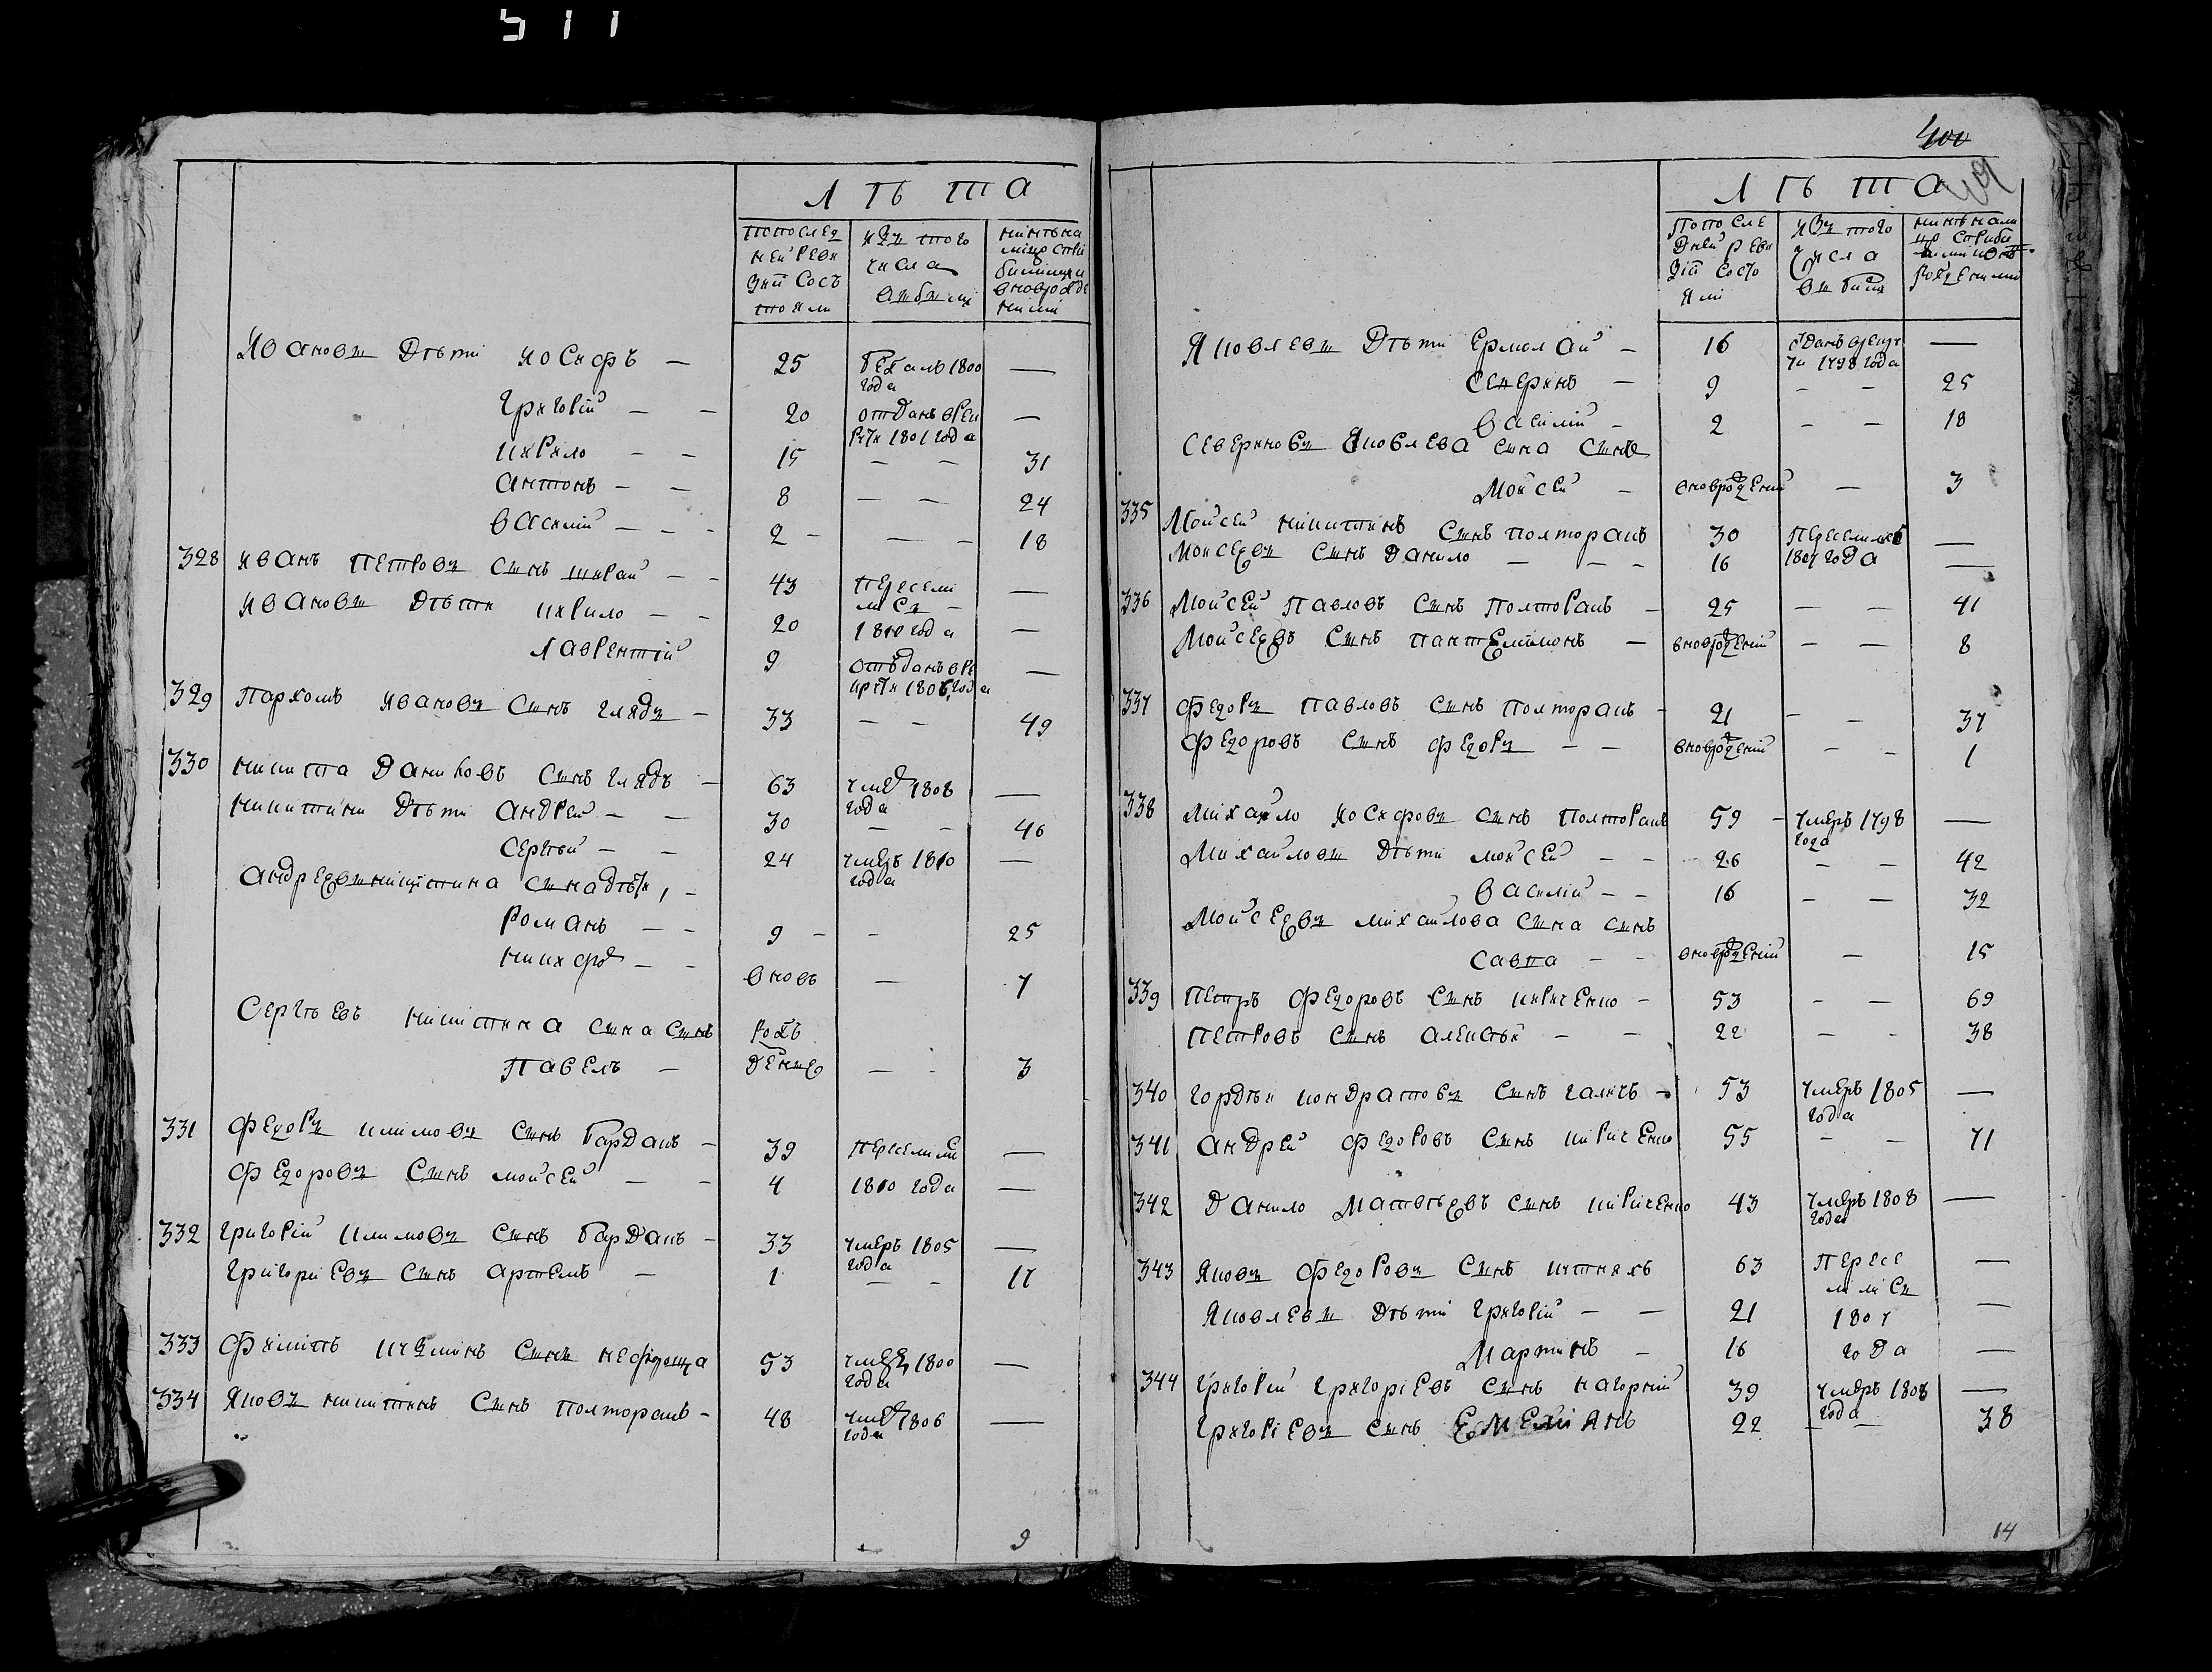 511
ЛѢТА
Попослед ней реви зіи сос тояли
Изъ того числа выбыли
Нинѣ на лицо
Ивановы Дѣти Иосифъ — 25 бежалъ 1800 года —
Григорій — — 20 отданъ врек руты 1801 года —
Кирило — — 15 — — 31
Антонъ — — 8 — — 24
Василій — — — 2 — — — 18
328 Иванъ Петровъ Сынъ Шкрай — — 43 Пересели лисъ — —
Ивановы Дѣти Кирило — — 20 1810 года —
Лаврентій 9 отъданъ вре круты 1806 года —
329 Пархомъ Ивановъ Сынъ Глядъ — 33 — — 49
330 Никита Даниловъ Сынъ Глядъ — 63 умеръ 1808 года —
Никитины Дѣти Андрей — — 30 — — 46
Сергѣй — — 24 умеръ 1810 года —
Андреевы Никитина Сына дѣти, —
Романъ — — 9 — — 25
Никифоръ — — вновъ — 7
Сергѣевъ Никитина сына сынъ рож
Павелъ — деные — — 3
331 Федоръ Климовъ Сынъ Бардакъ — 39 переселили —
Федоровъ Сынъ Мойсей — — 4 1810 года —
332 Григорій Климовъ Сынъ Бардакъ — 33 умеръ 1805 года —
Григориевъ Сынъ Артемъ — 1 — — 17
333 Филипъ Сынъ 53 умеръ 1800 года —
334 Яковъ Никитинъ Сынъ Полторакъ — 48 умеръ 1806 года —
9
400
ЛѢТА
Попосле дней реви зіи состо яли
Изъ того числа выбыли
Нинѣ нали цо
Яковлевы Дѣти Ермолай — 16 отданъ врекру ты 1798 года —
Северинъ — 9 — — 25
Василій — 2 — — 18
Севериновъ Яковлева сына сынъ
Мойсей — вноврожденій — 3
335 Мойсей Никитинъ Сынъ Полторакъ 30 переселился —
Мойсеевъ Сынъ Данило — — — 16 1807 года —
336 Мойсей Павловъ Сынъ Полторакъ — 25 — — 41
Мойсеевъ Сынъ Пантелимонъ — вноврожденій — — 8
337 Федоръ Павловъ Сынъ Полторакъ — 21 — — 37
Федоровъ Сынъ Федоръ — — вноврожденій — — 1
338 Михайло Иосифовъ Сынъ Полторакъ 59 — умеръ 1798 года —
Михайловы Дѣти Мойсей — — 26 — — 42
Василій — — 16 — — 32
Мойсеевъ Михайлова Сына сынъ
Савка — — вноврожденій — 15
339 Петръ Федоровъ Сынъ Кириченко — 53 — — 69
Петровъ Сынъ Алексѣй — — 22 — — 38
340 Гордѣй Кондратовъ Сынъ Галичъ — 53 умеръ 1805 года —
341 Андрей Федоровъ Сынъ Кириченко 55 — — 71
342 Данило Матвѣевъ Сынъ Кириченко 43 умеръ 1808 года —
343 Яковъ Федоровъ Сынъ 63 Пересе лилисъ —
Яковлевы Дѣти Григорій — — 21 1807 —
Мартинъ — 16 года —
344 Григорій Григоріевъ Сынъ Нагорній 39 умеръ 1808 года —
Григоріевъ Сынъ Емеліянъ 22 — — 38
14